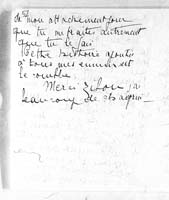 mon attachement pour
que tu m'écrites autrement
que tu le fais
Cette histoire ajoutée
à tous mes ennuis est
le comble.
Merci j'ai
beaucoup de chagrin